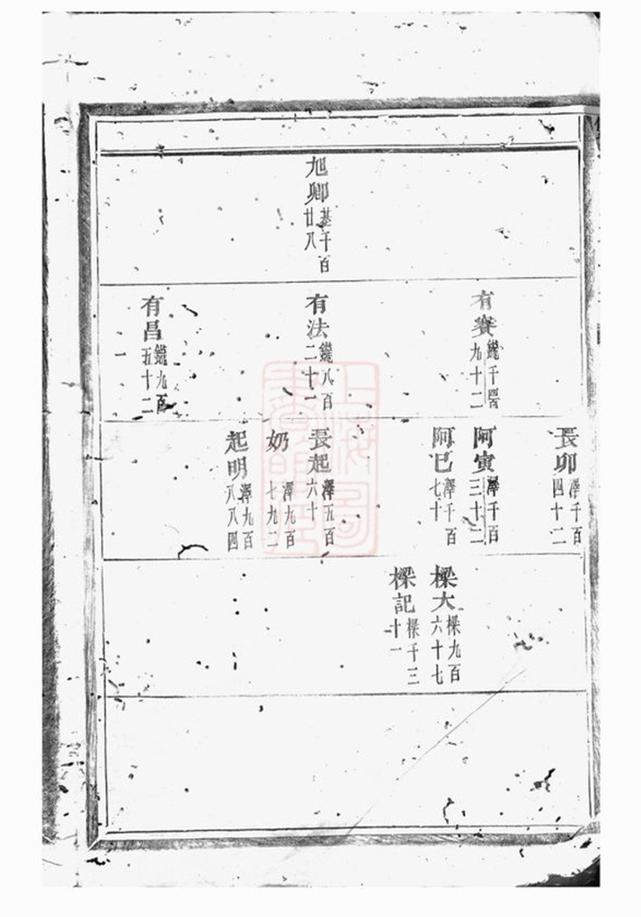 旭卿 基千百廿八
有賽 千 九十二
有法 八百二十一
有昌 九百五十二
一
長卯 澤千百四十二
阿寅 澤千百三十二
阿巳 澤千百七十
長起 澤五百六十
奶 澤九百七九二
起明 澤九百八八四
樑大 樑九百六十七
樑記 樑千三十一
上海圖書館藏